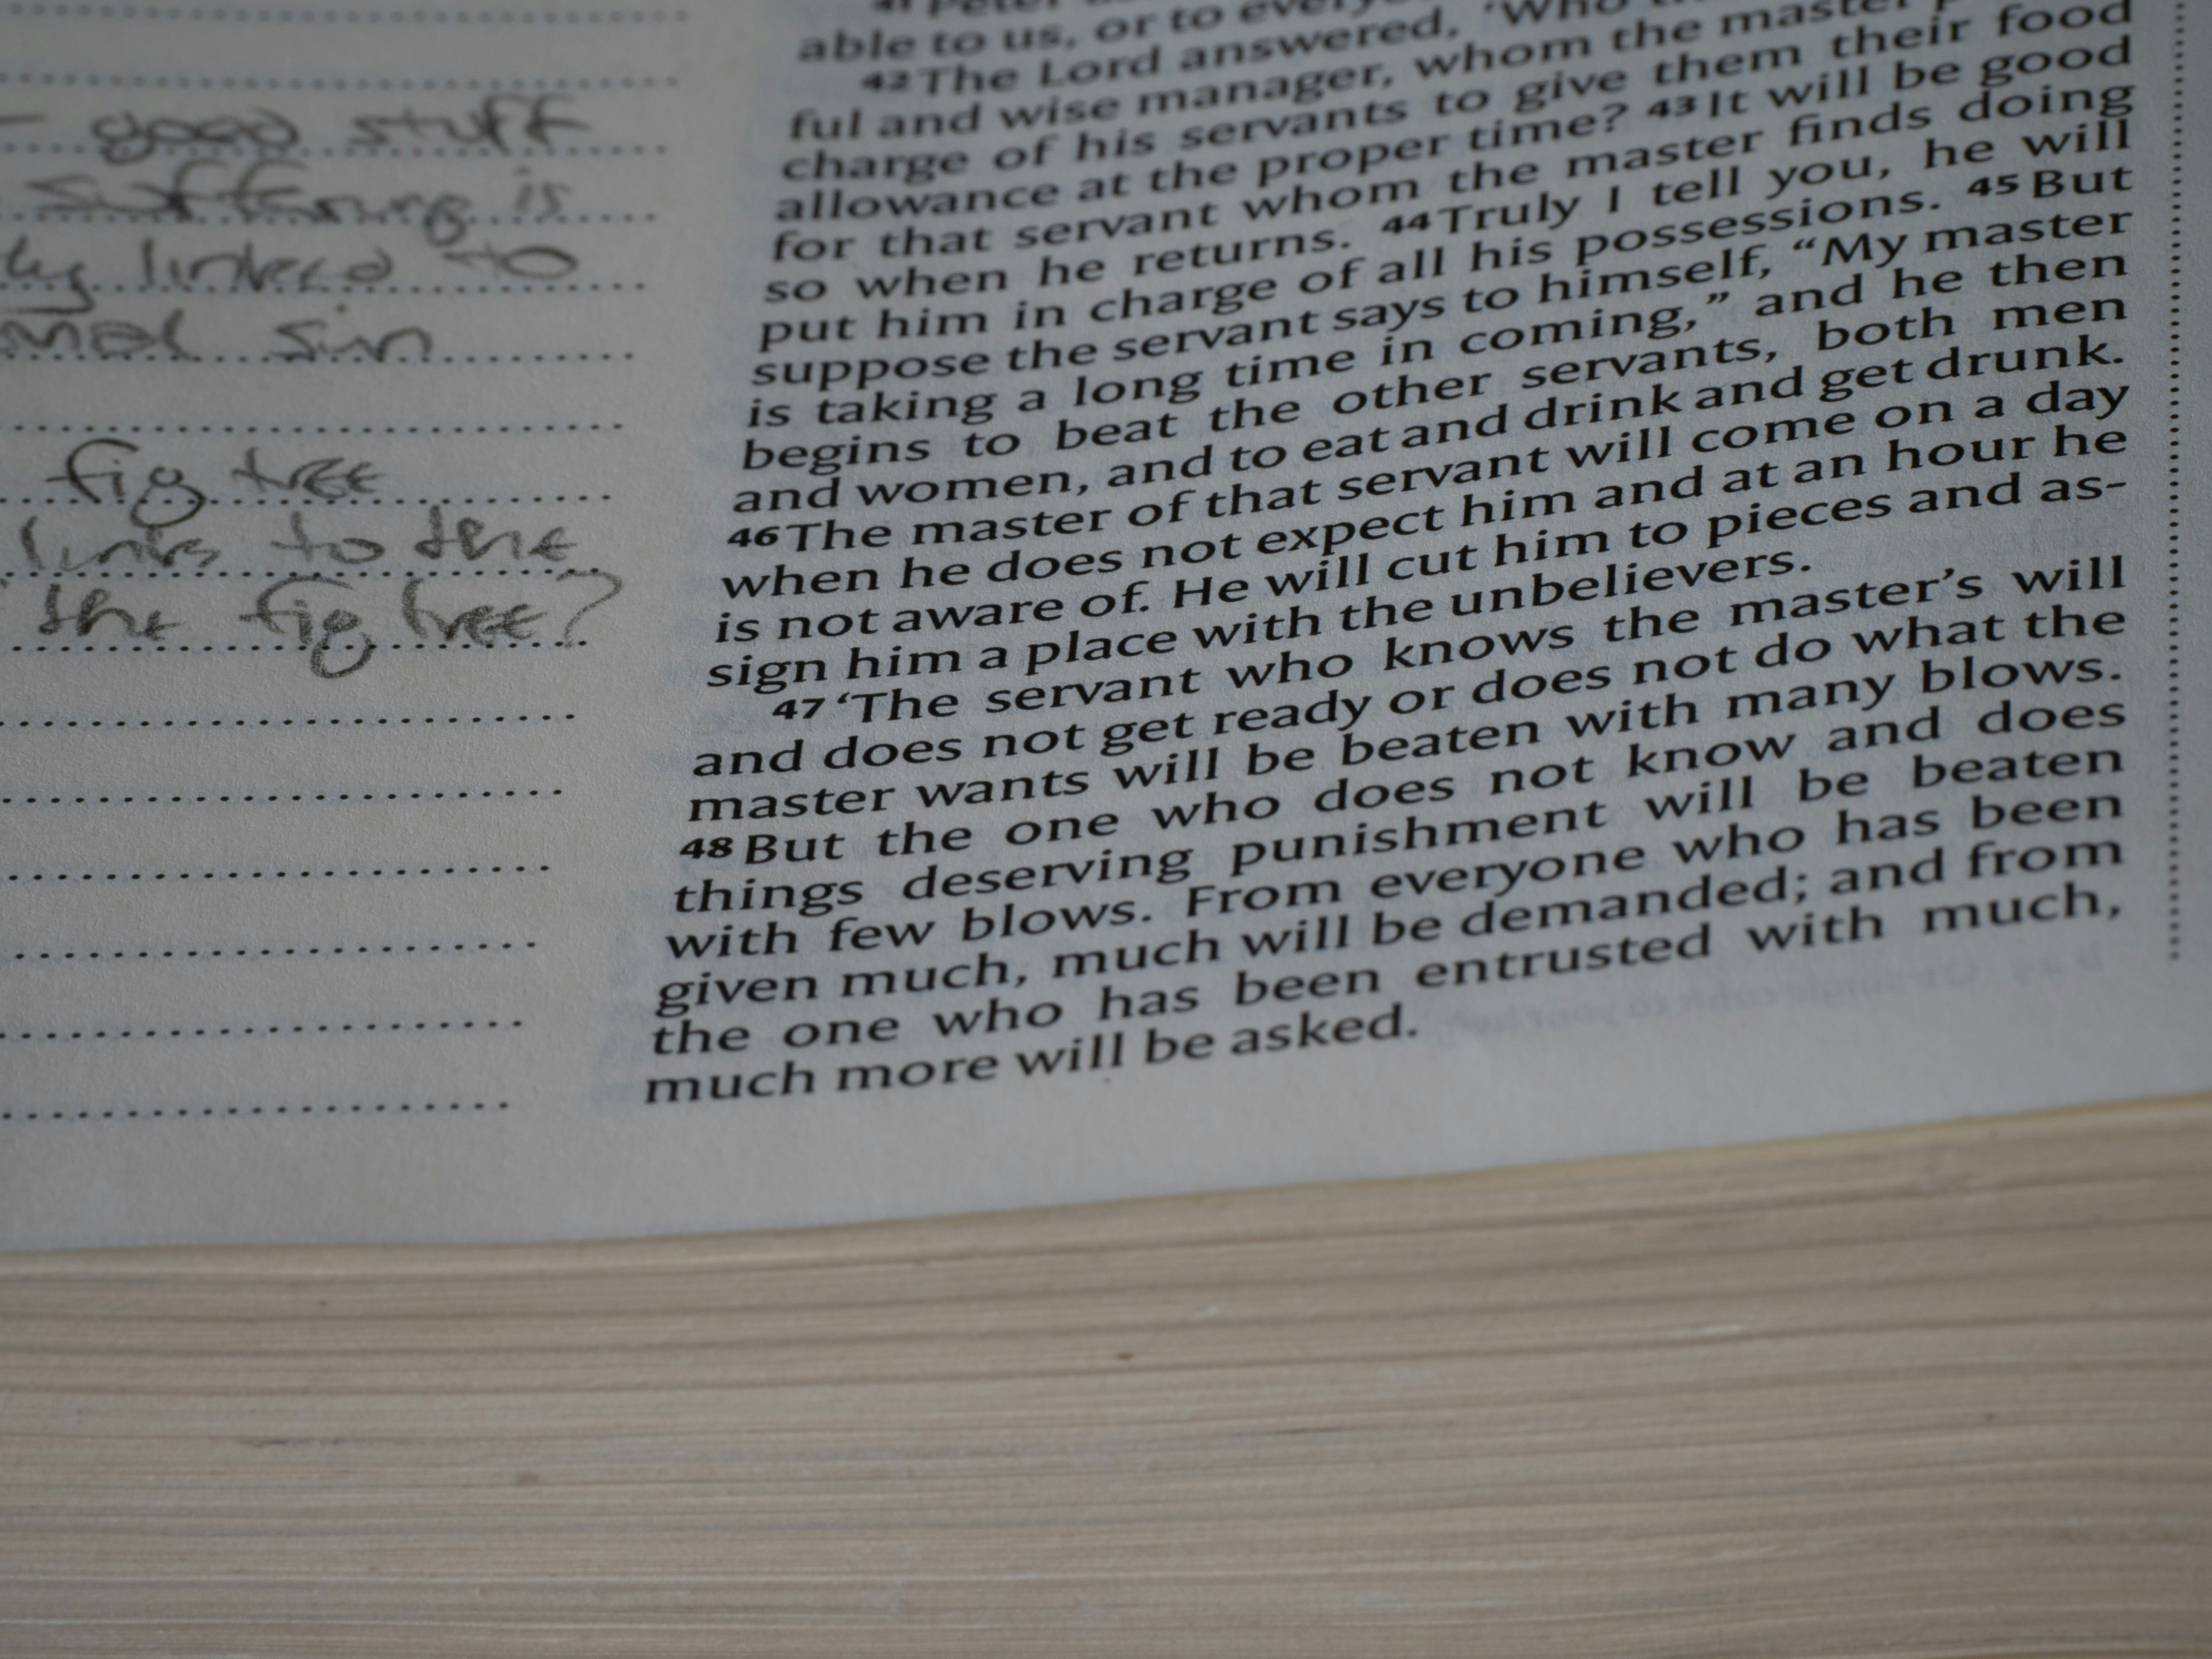 good stuff
suffering is
ly linked to
nal sin
fig tree
links to the
the fig tree?
41 Peter
able to us, or to every
42 The Lord answered, ‘Who
ful and wise manager, whom the master
charge of his servants to give them their food
allowance at the proper time? 43 It will be good
for that servant whom the master finds doing
so when he returns. 44 Truly I tell you, he will
put him in charge of all his possessions. 45 But
suppose the servant says to himself, “My master
is taking a long time in coming,” and he then
begins to beat the other servants, both men
and women, and to eat and drink and get drunk.
46 The master of that servant will come on a day
when he does not expect him and at an hour he
is not aware of. He will cut him to pieces and as-
sign him a place with the unbelievers.
47 ‘The servant who knows the master’s will
and does not get ready or does not do what the
master wants will be beaten with many blows.
48 But the one who does not know and does
things deserving punishment will be beaten
with few blows. From everyone who has been
given much, much will be demanded; and from
the one who has been entrusted with much,
much more will be asked.